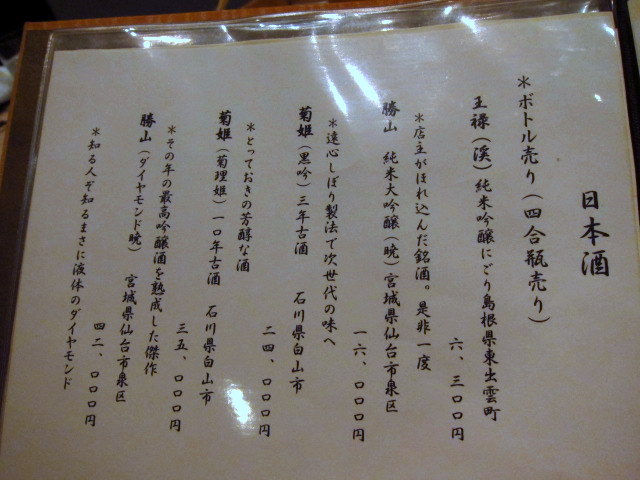 日本酒
＊ボトル売り（四合瓶売り）
王禄（渓）純米吟醸にごり島根県東出雲町
六、三〇〇円
＊店主がほれ込んだ銘酒。是非一度
勝山 純米大吟醸（暁）宮城県仙台市泉区
一六、〇〇〇円
＊遠心しぼり製法で次世代の味へ
菊姫（黒吟）三年古酒 石川県白山市
二四、〇〇〇円
＊とっておきの芳醇な酒
菊姫（菊理姫）一〇年古酒 石川県白山市
三五、〇〇〇円
＊その年の最高吟醸酒を熟成した傑作
勝山（ダイヤモンド暁） 宮城県仙台市泉区
四二、〇〇〇円
＊知る人ぞ知るまさに液体のダイヤモンド